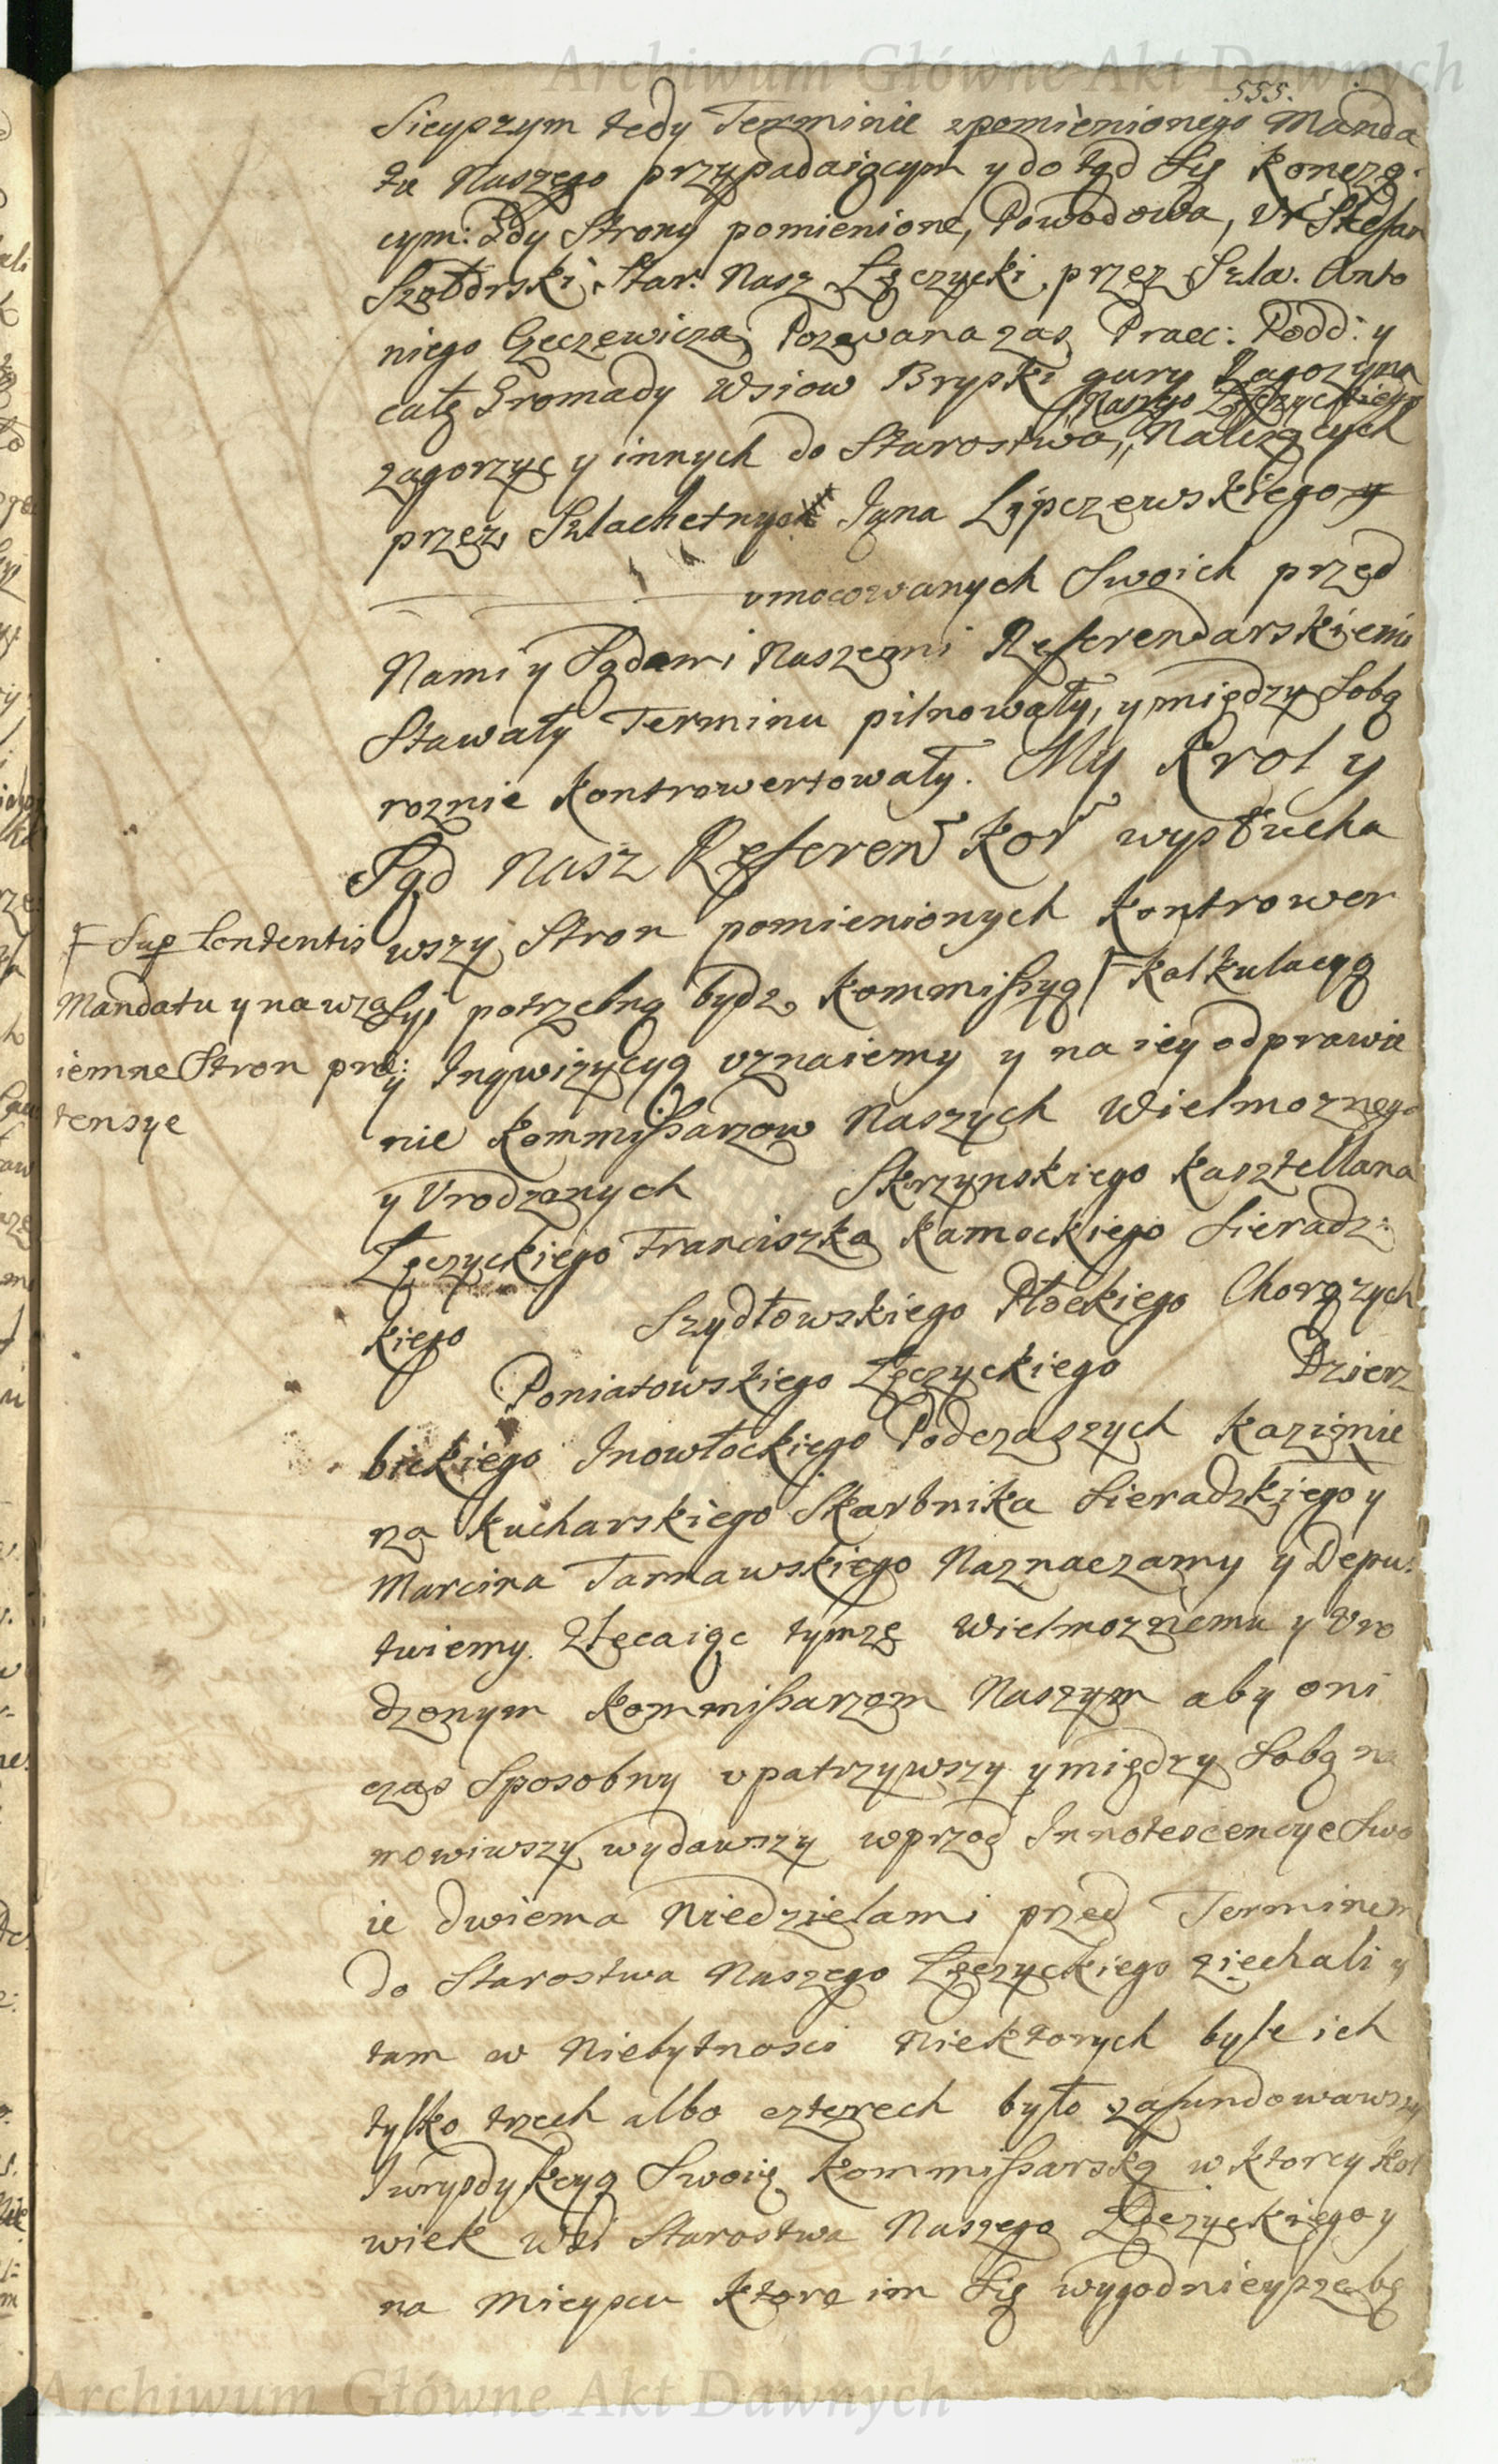 Archiwum Główne Akt Dawnych
555.
Sieyszym tedy Terminie zpomienionego Manda
tu Naszego przypadaiącym y do tąd się kończą
cym: Gdy Strony pomienione, Powodowa, Ur Stefan
Szołdrski Star: Nasz Łęczycki, przez Szla. Anto
niego Gęczewicza, Pozwana zas Prac: Podd: y
całę Gromady Wsiow Bryski gury Zagorzyna
Naszego Łęczyckiego
zagorzyc y innych do Starostwa, Należących
przez Szlachetnych Jana Lipczewskiego y
umocowanych Swoich przed
Nami y Sądami Naszemi Referendarskiemi
Stawały Terminu pilnowały, y między Sobą
roznie kontrowertowały. My Krol y
Sąd Nasz Referen Kor wysłucha
wszy Stron pomienionych kontrower
Syi potrzebną bydz kommissyą kalkulacyą
y Inqwizycyą uznaiemy y na iey odprawie
nie kommissarzow Naszych Wielmoznego
y Urodzonych Skrzynskiego Kasztellana
Łęczyckiego Franciszka Kamockiego Sieradz:
kiego Szydłowskiego Płockiego Chorązych
Poniatowskiego Łęczyckiego Dzierz
bickiego Inowłockiego Podczaszych Kazimie
rza Kucharskiego Skarbnika Sieradzkiego y
Marcina Tarnawskiego Naznaczamy y Depu:
tuiemy. Zlecaiąc tymze Wielmoznemu y Uro
dzonym kommissarzom Naszym aby oni
czas Sposobny upatrzywszy y między Sobą na
mowiwszy wydawszy wprzod Innotescencye Swo
ie dwiema Niedzielami przed Terminem
do Starostwa Naszego Łęczyckiego ziechali y
tam w Niebytnosci Niektorych byle ich
tylko trzech albo czterech było zafundowawszy
Iurysdykcyą Swoię kommissarską w ktorey kol
wiek wsi Starostwa Naszego Łęczyckiego y
na Mieyscu ktore im się wygodnieysze bę
Sup Contentis
Mandatu y na wza
iemne Stron pre:
tensye
Archiwum Główne Akt Dawnych